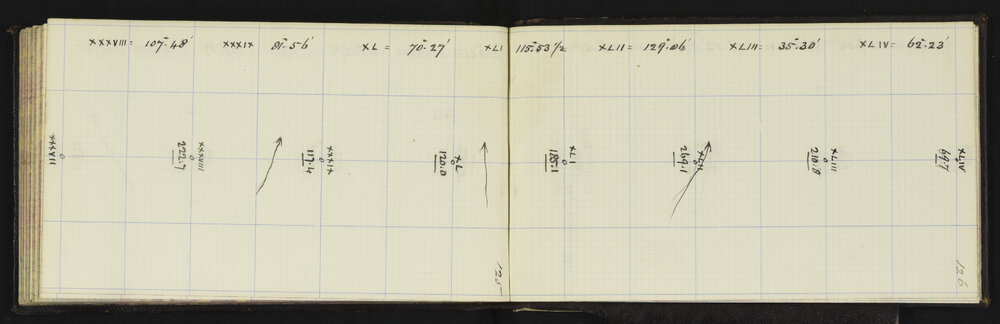 XXXVIII = 107°.48' XXXIX 81°.56' XL = 70°.27' XLI 115°.53½ XLII = 129°.06' XLIII = 35°.30' XLIV = 62°.23'
XXXVII
XXXVIII
222.7
XXXIX
117.4
XL
120.0
XLI
185.1
XLII
269.1
XLIII
218.8
XLIV
69.7
125
126